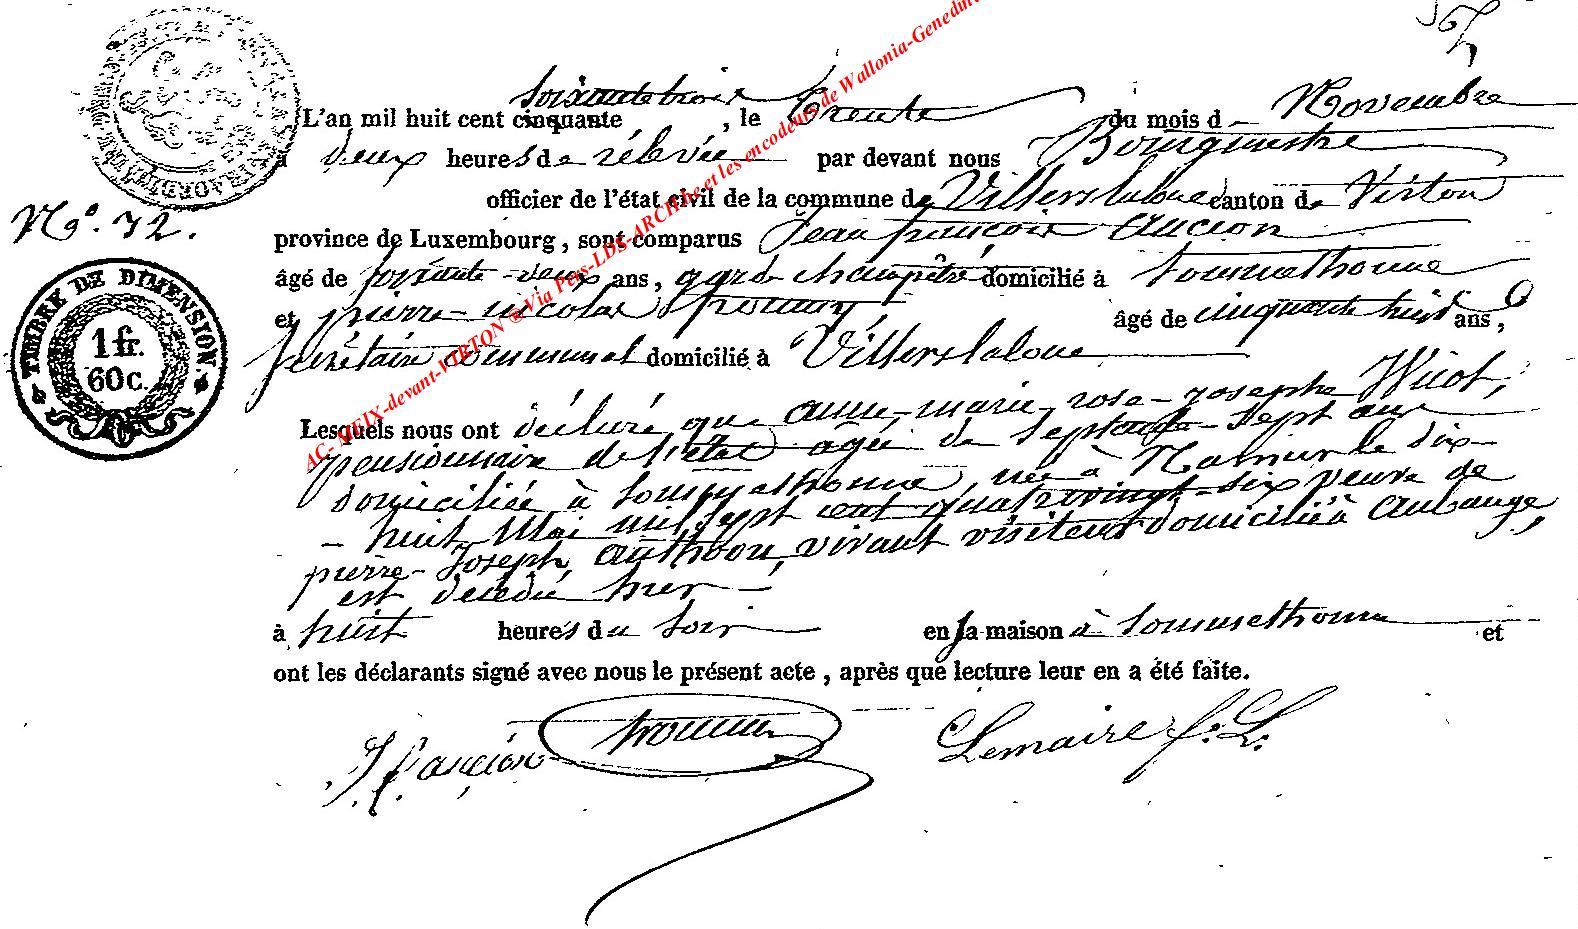 AC-MEIX-devant-VIRTON ® Via Pers-LDS-ARCHive et les encodeurs de Wallonia-Genedinter
N°. 72.
TIMBRE DE DIMENSION.
1 fr.
60 c.
soixante trois
L'an mil huit cent cinquante, le trente du mois d Novembre
à deux heures de rélevée par devant nous Bourgmestre
officier de l'état civil de la commune de Villerslaloue canton de Virton
province de Luxembourg, sont comparus Jean françois Ancion
âgé de soixante-deux ans, gard champêtre domicilié à Sommethonne
et pierre-nicolas âgé de cinquante huit ans,
secrétaire communal domicilié à Villerslaloue
Lesquels nous ont déclaré que anne-marie-rose-josephe Wicot,
pensionnaire de l'état agée de septante-sept ans
domiciliée à Sommethonne, née à Namur le dix-
-huit Mai mil sept cent quatrevingt-six veuve de
pierre-Joseph, vivant visiteur domicilié à aubange,
est décédée hier
à huit heures du soir en sa maison à Sommethonne et
ont les déclarants signé avec nous le présent acte, après que lecture leur en a été faite.
Lemaire f. L.